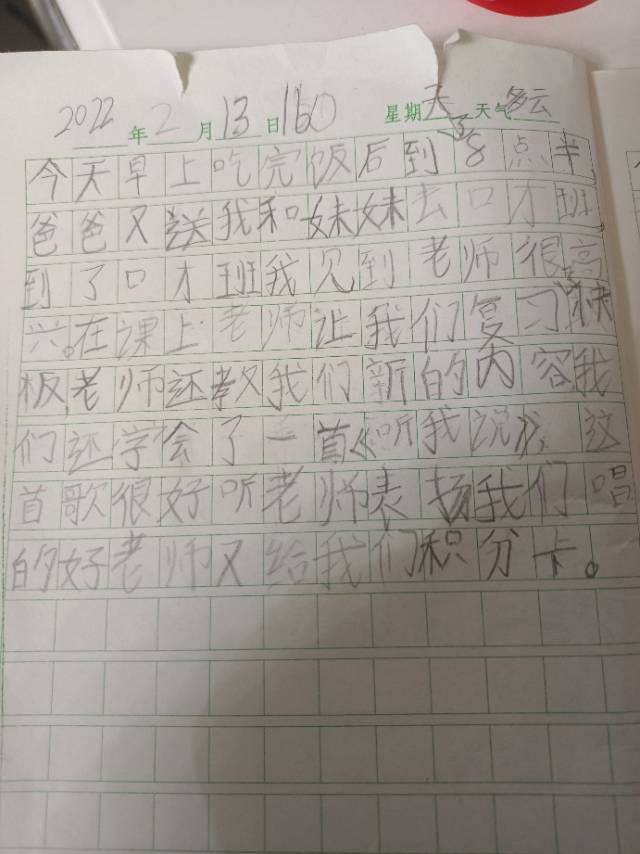 2022年2月13日160 星期天天气多云
今天早上吃完饭后到了8点半
爸爸又送我和妹妹去口才班,
到了口才班我见到老师很高
兴。在课上老师让我们复习快
板,老师还教我们新的内容我
们还学会了一首《听我说》,这
首歌很好听老师表扬我们唱
的好老师又给我们积分卡。